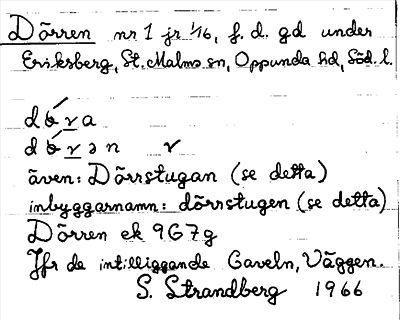 Dörren nr 1 jr 1/16, f. d. gd under
Eriksberg, St. Malms sn, Oppunda hd, Söd. l.
även: Dörrstugan (se detta)
inbyggarnamn: dörrstugen (se detta)
Dörren ek 9G7g
Jfr de intilliggande Gaveln, Väggen.
S. Strandberg 1966